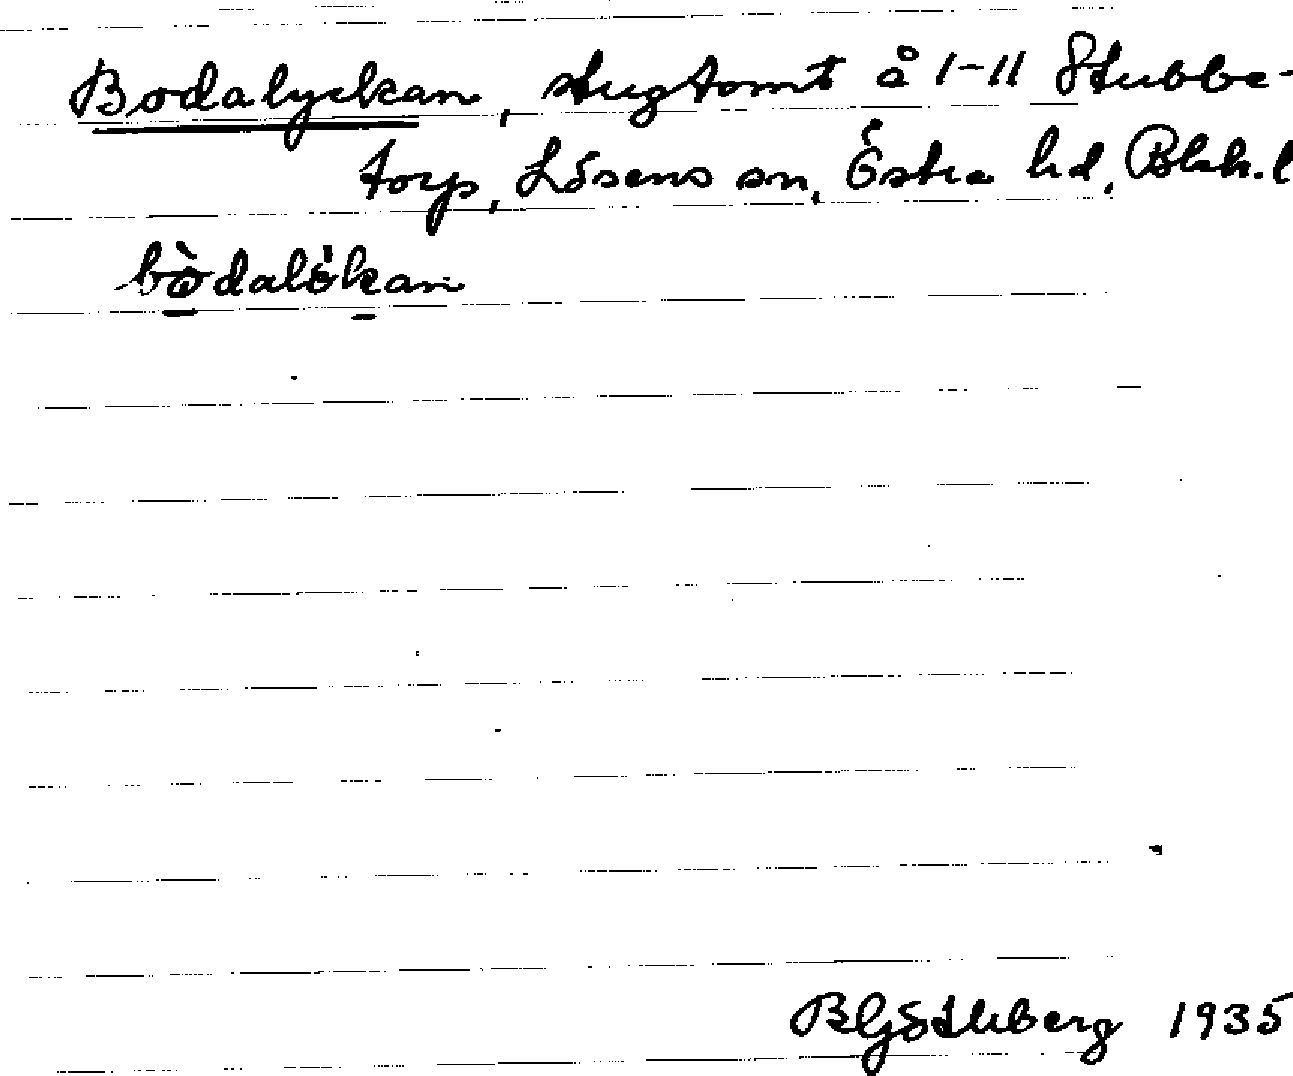 Bodalyckan, stugtomt å 1-11 Stubbe-
torp, Lösens sn, Östra hd, Blek. l
bòdalökan
B Götlleberg 1935